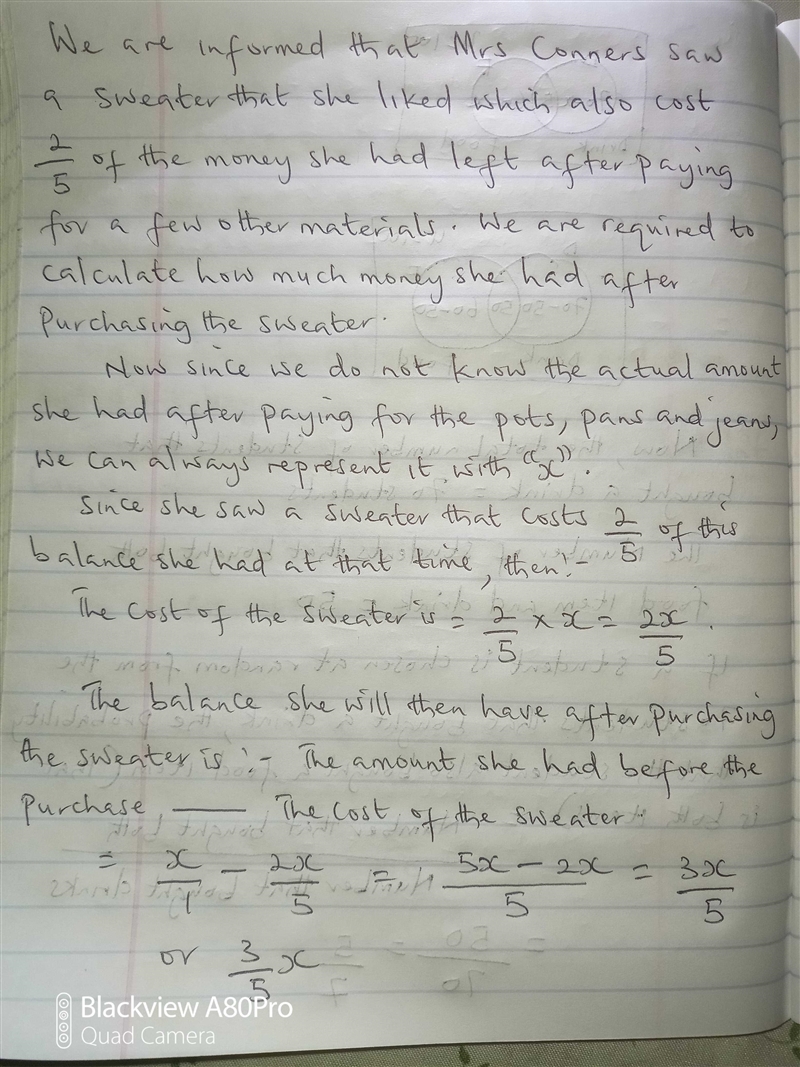 We are informed that Mrs Conners saw
a sweater that she liked which also cost
2/5 of the money she had left after paying
for a few other materials. We are required to
calculate how much money she had after
Purchasing the sweater.
Now since we do not know the actual amount
she had after paying for the pots, pans and jeans,
we can always represent it with "x".
Since she saw a sweater that costs 2/5 of this
balance she had at that time, then:-
The cost of the sweater is = 2/5 × x = 2x/5.
The balance she will then have after purchasing
the sweater is :- The amount she had before the
Purchase, — The cost of the sweater.
= x/1 - 2x/5 = 5x - 2x/5 = 3x/5
or 3/5 x
Blackview A80Pro
Quad Camera